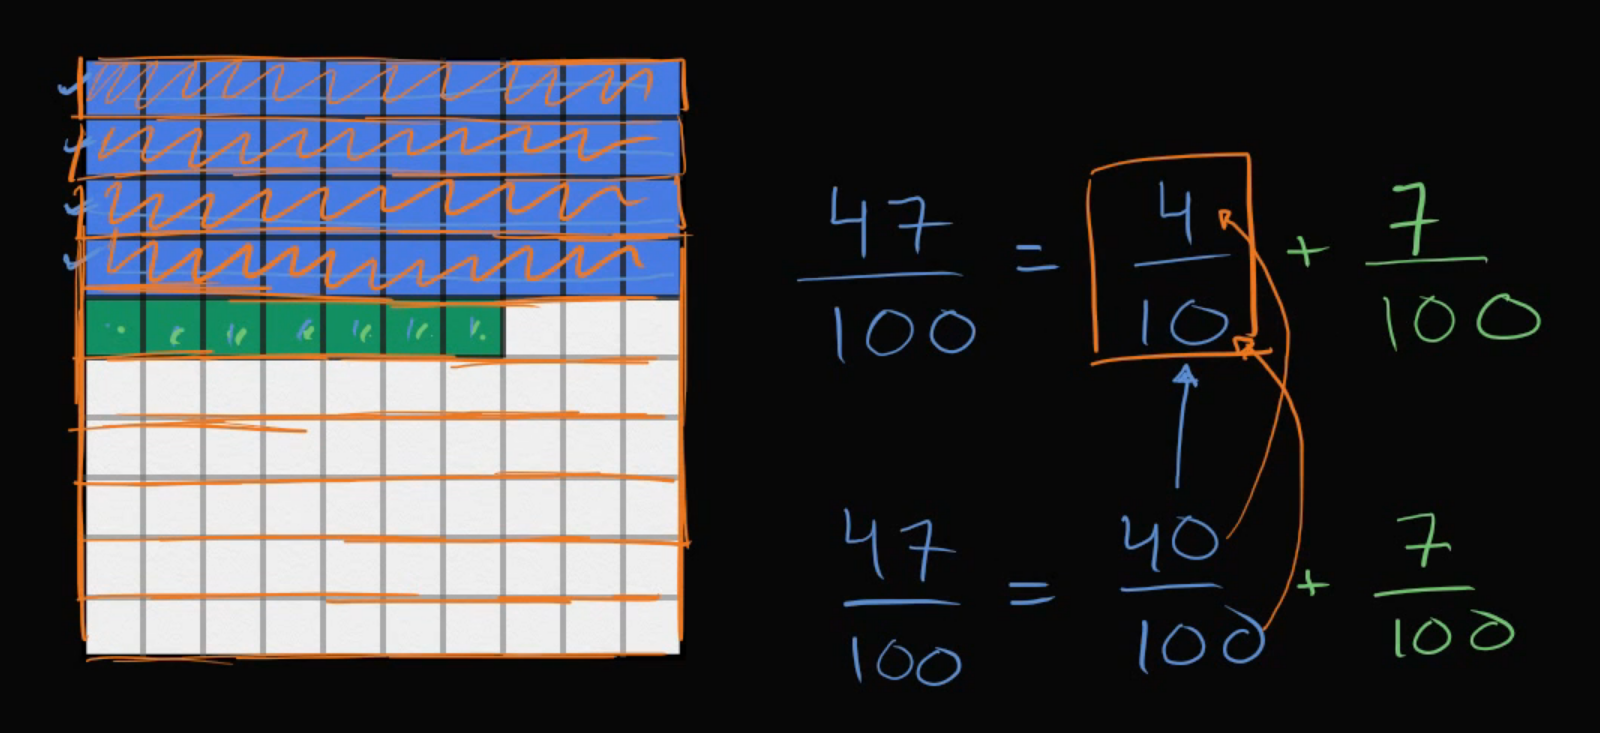 47/100 = 4/10 + 7/100
47/100 = 40/100 + 7/100